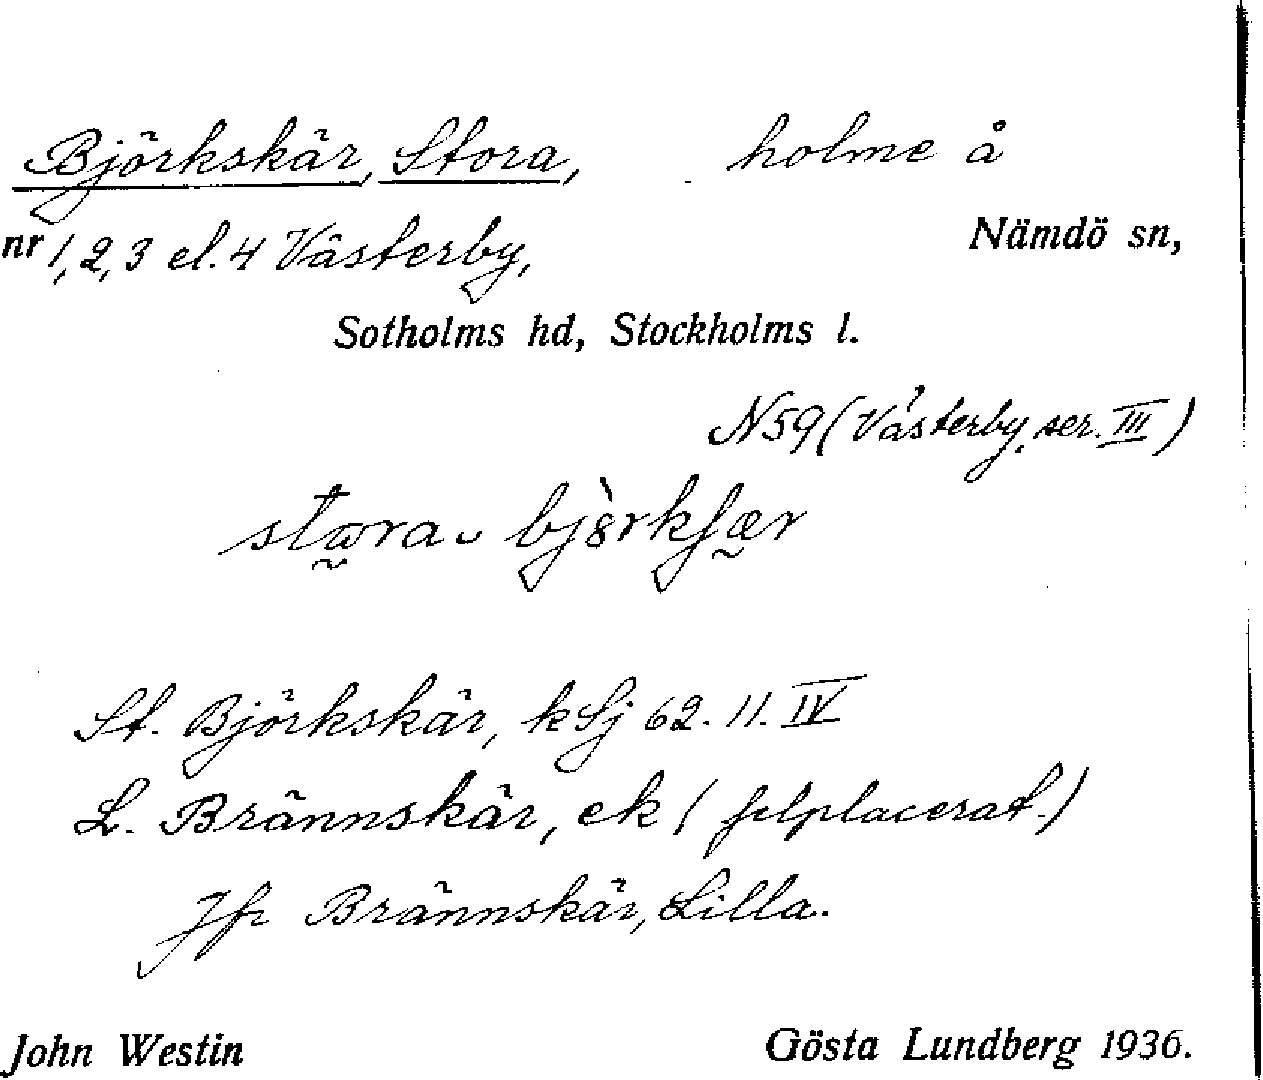 Björkskär, Stora, holme å
nr 1, 2, 3 el. 4 Västerby, Nämdö sn,
Sotholms hd, Stockholms l.
N59 (Västerby, ser. III)
St. Björkskär, k Sj 62. 11. IV
L. Brännskär, ek (felplacerat.)
Jfr Brännskär, Lilla.
John Westin Gösta Lundberg 1936.